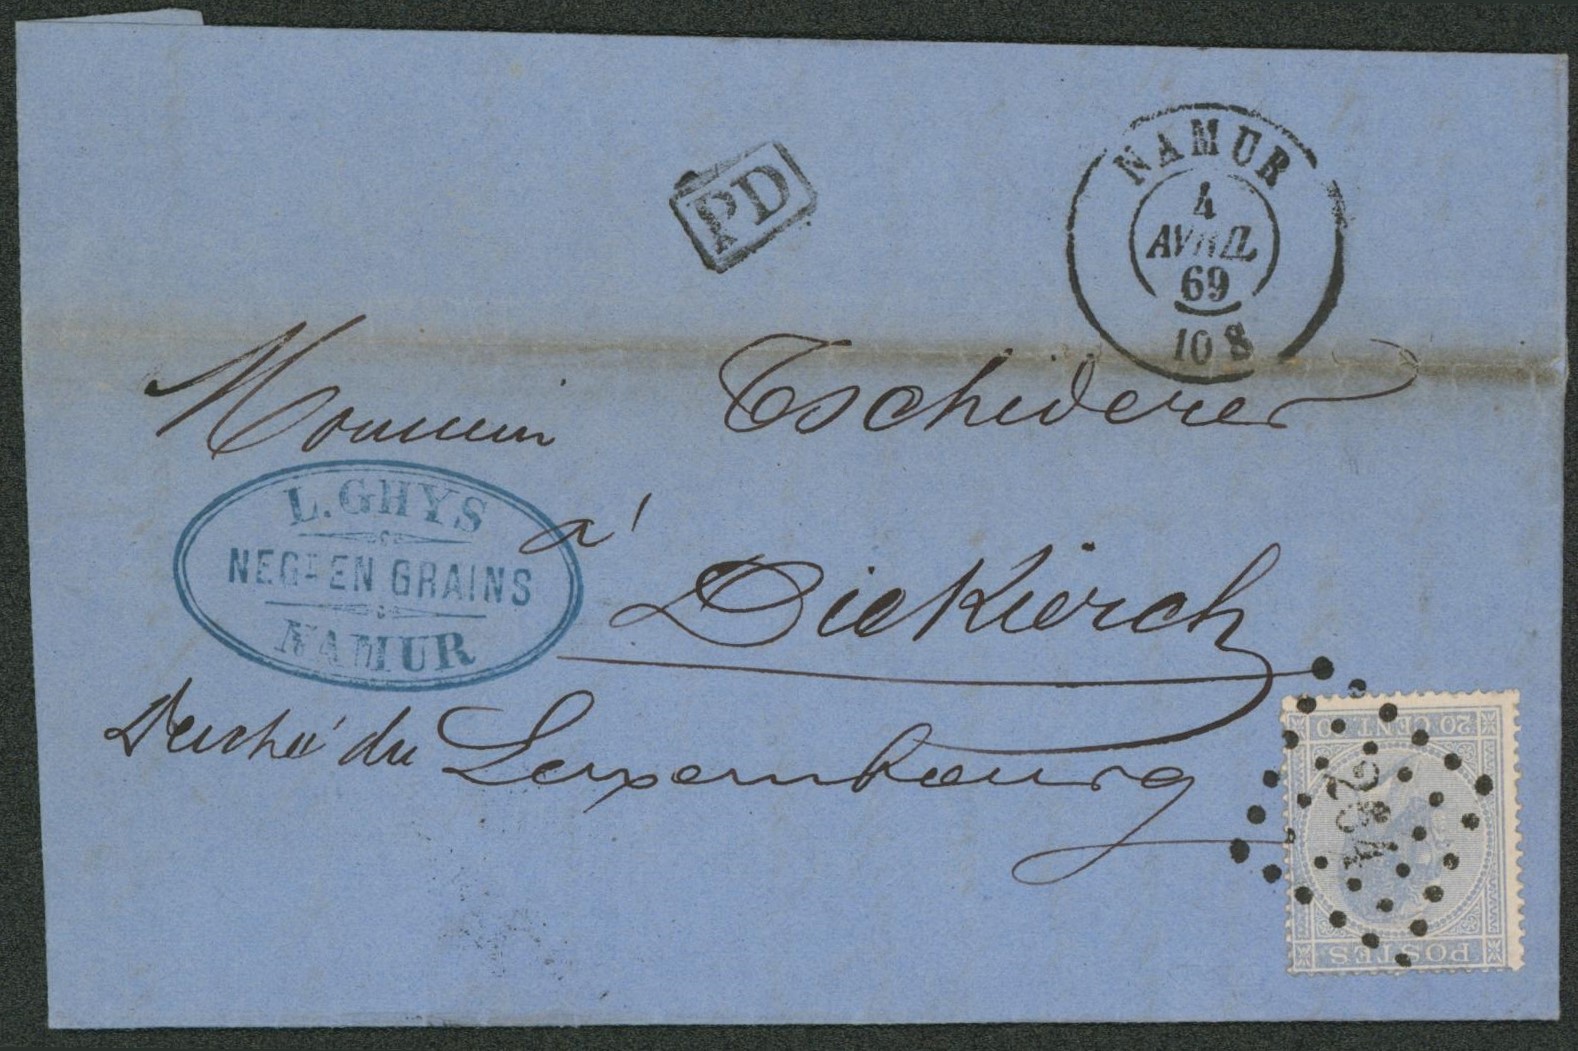 PD
NAMUR
4
AVRIL
69
10 S
Monsieur Tschiderer
L. GHYS
NEGT EN GRAINS
NAMUR
à
Diekierch
Duché du Luxembourg
20 CENT 20
264
POSTES